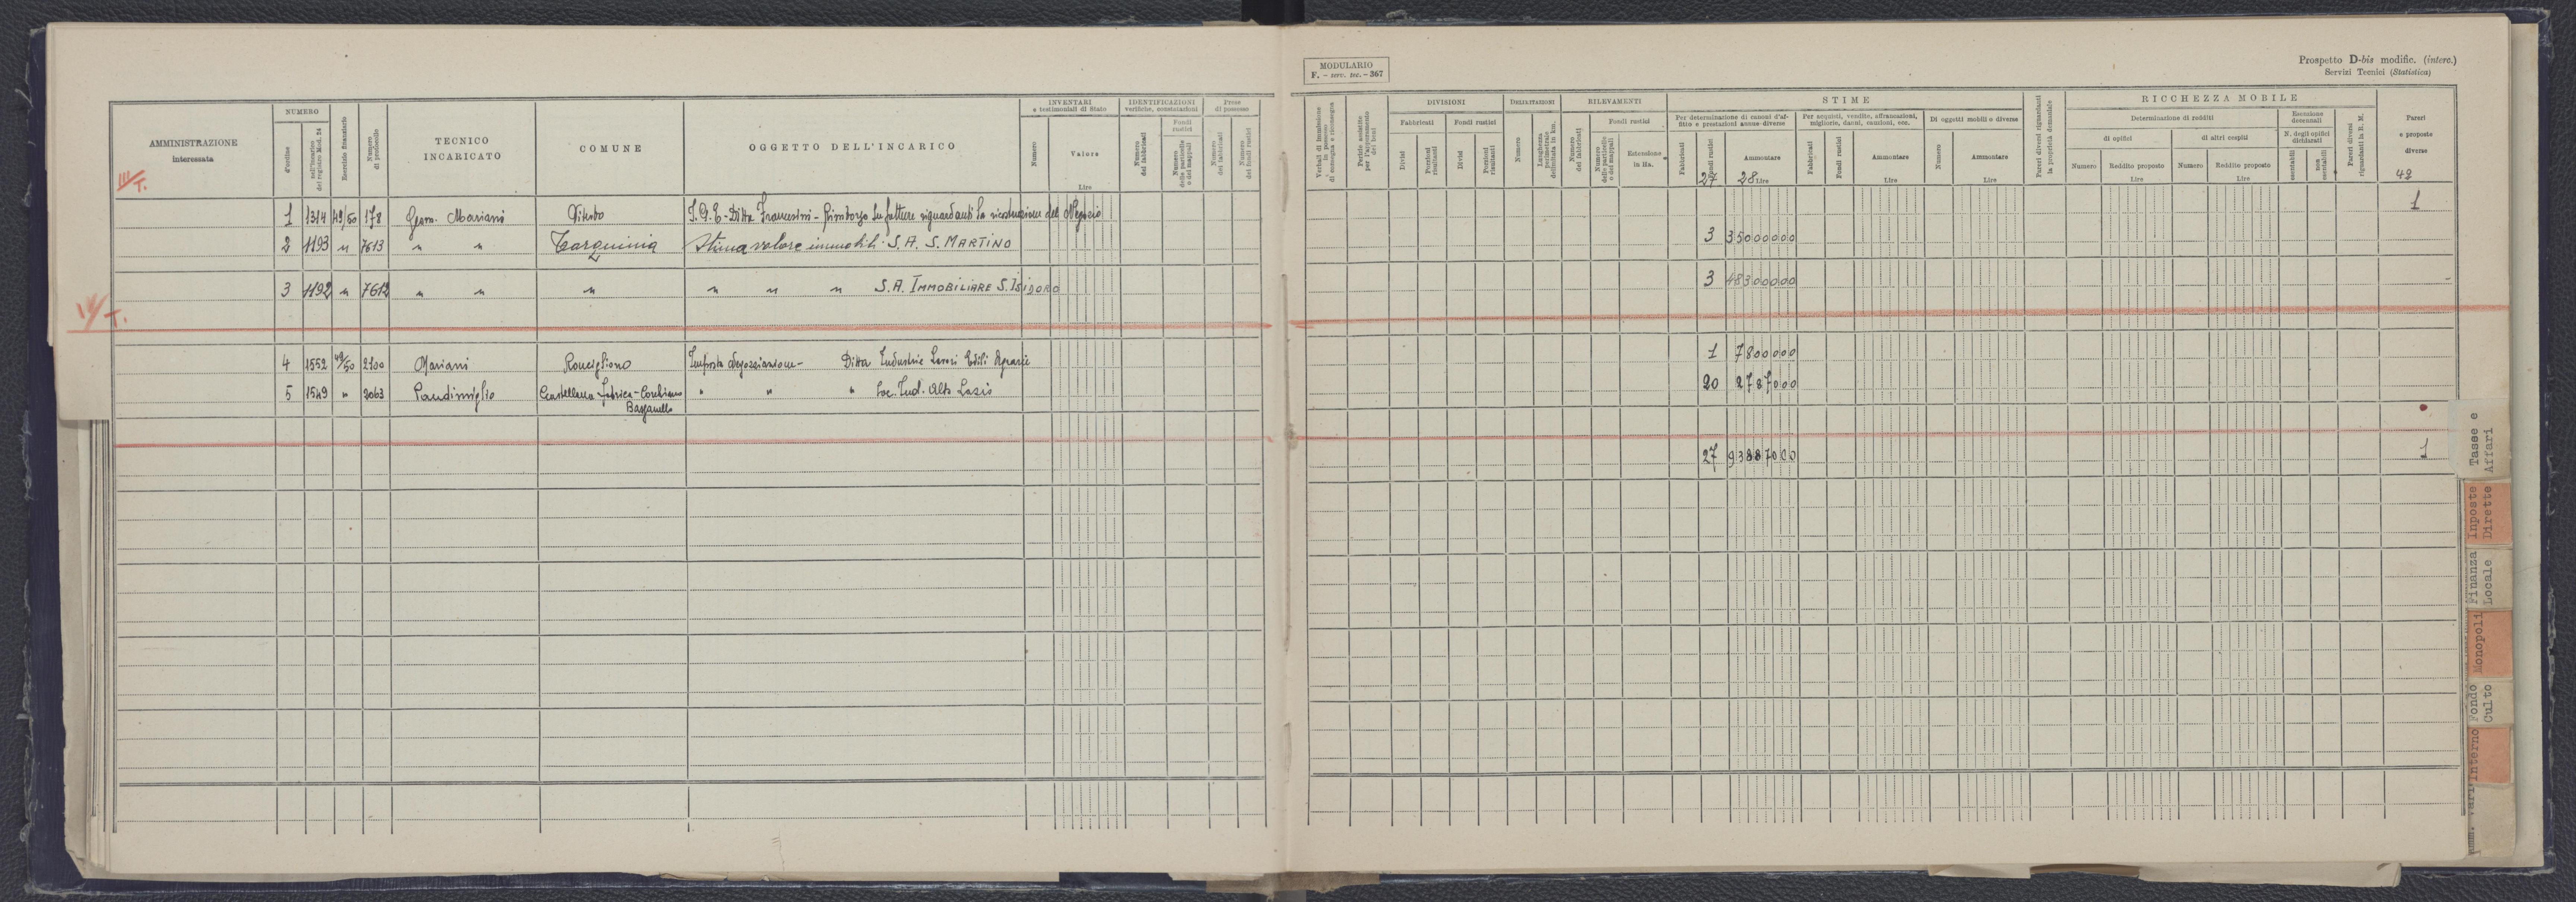 MODULARIO
F. - serv. tec. - 367
Prospetto D-bis modific. (interc.)
Servizi Tecnici (Statistica)
AMMINISTRAZIONE
interessata
NUMERO
d'ordine
nell'incarico del registro Mod. 24
Esercizio finanziario
Numero di protocollo
TECNICO
INCARICATO
COMUNE
OGGETTO DELL'INCARICO
INVENTARI
e testimoniali di Stato
Numero
Valore
Lire
IDENTIFICAZIONI
verifiche, constatazioni
Numero dei fabbricati
Fondi rustici
Numero delle particelle o dei mappali
Prese di possesso
Numero dei fabbricati
Numero dei fondi rustici
Verbali di immissione in possesso di consegna e riconsegna
Perizie assistite per l'appuramento dei beni
DIVISIONI
Fabbricati
Fondi rustici
Divisi
Porzioni risultanti
Divisi
Porzioni risultanti
DELIMITAZIONI
Numero
Lunghezza perimetrale delimitata in km.
RILEVAMENTI
Numero dei fabbricati
Fondi rustici
Numero delle particelle o dei mappali
Estensione in Ha.
STIME
Per determinazione di canoni d'affitto e prestazioni annue diverse
Fabbricati
Fondi rustici
Ammontare
Lire
Per acquisti, vendite, affrancazioni, migliorie, danni, cauzioni, ecc.
Fabbricati
Fondi rustici
Ammontare
Lire
Di oggetti mobili o diverse
Numero
Ammontare
Lire
Pareri diversi riguardanti la proprietà demaniale
RICCHEZZA MOBILE
Determinazione di redditi
di opifici
di altri cespiti
Numero
Reddito proposto
Lire
Numero
Reddito proposto
Lire
Esenzione decennali
N. degli opifici dichiarati
esentabili
non esentabili
Pareri diversi riguardanti la R. M.
Pareri
e proposte
diverse
27 28
42
III/T.
1 1314 49/50 178 Geom. Mariani Viterbo I.G.E - Ditta Francesini - Rimborzo su fatture riguardanti la ricostruzione del Negozio 1
2 1193 " 7613 " " Tarquinia Stima valore immobili S. A. S. MARTINO 3 35000000
3 1192 " 7612 " " " " " " S.A. IMMOBILIARE S. ISIDORO 3 48300000
IV/T.
4 1552 49/50 2100 Mariani Ronciglione Imposta Negoziazione - Ditta Industrie Lavori Edili Agrarie 1 7800000
5 1549 " 2063 Pandimiglio Castellana - Fabrica - Corchiano " " " Soc. Ind. Alto Lazio 20 2787000
Bassanello
27 93887000 1
Tasse e
Affari
Inposte
Dirette
Finanza
Locale
Monopoli
Fondo
Culto
Interno